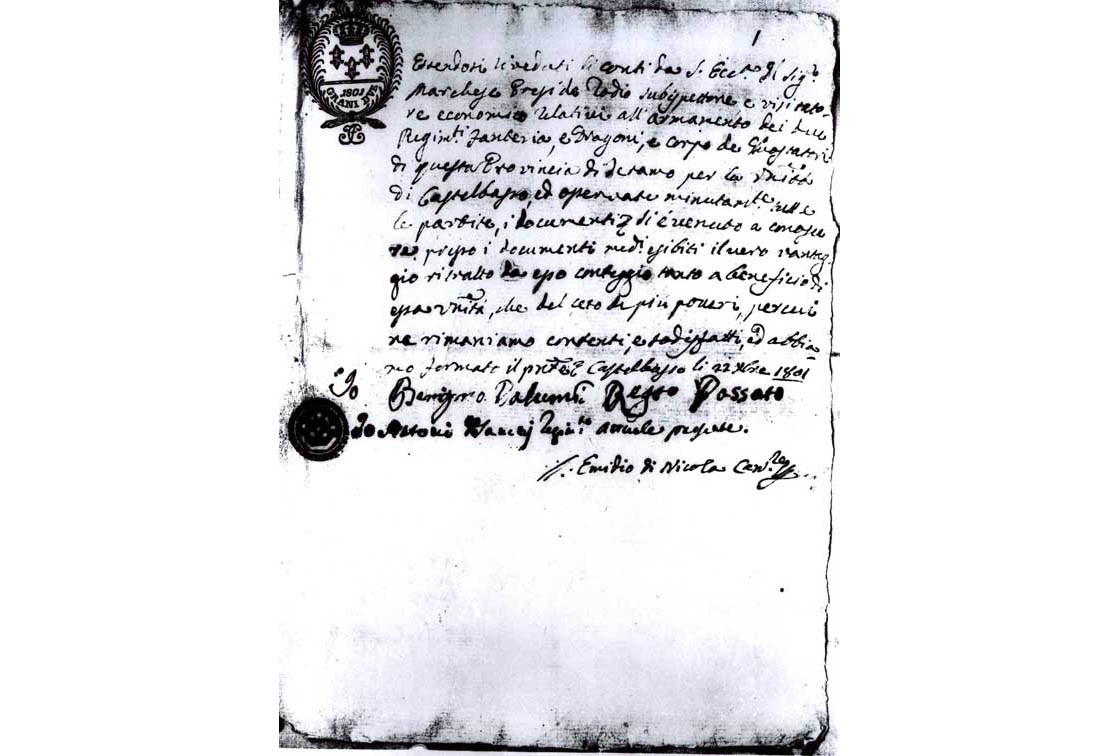 1
1801
GRANI DUE
Essendosi riveduti li conti da S. Ecc.za il Sig.r
Marchese Preside Rodio Subispettore e visitato-
re economico relativi all'armamento dei due
Regim.ti Fanteria, e Dragoni, e corpo de
di questa Provincia di Teramo per la Un.tà
di Castelbasso, ed osservate minutam.te tutte
le partite, i documenti di è venuto a conosce
re presso i documenti med.i esibiti il vero vantag-
gio ritratto da esso conteggio tanto a beneficio di
essa Un.tà, che del ceto di più poveri, percui
ne rimaniamo contenti, e sodisfatti, ed abbia
mo formato il pnte Castelbasso li 22 Xbre 1801
Io Benigno Palumbi Regto Passato
Io Antoni Regim.to attuale
Emidio di Nicola Can.re